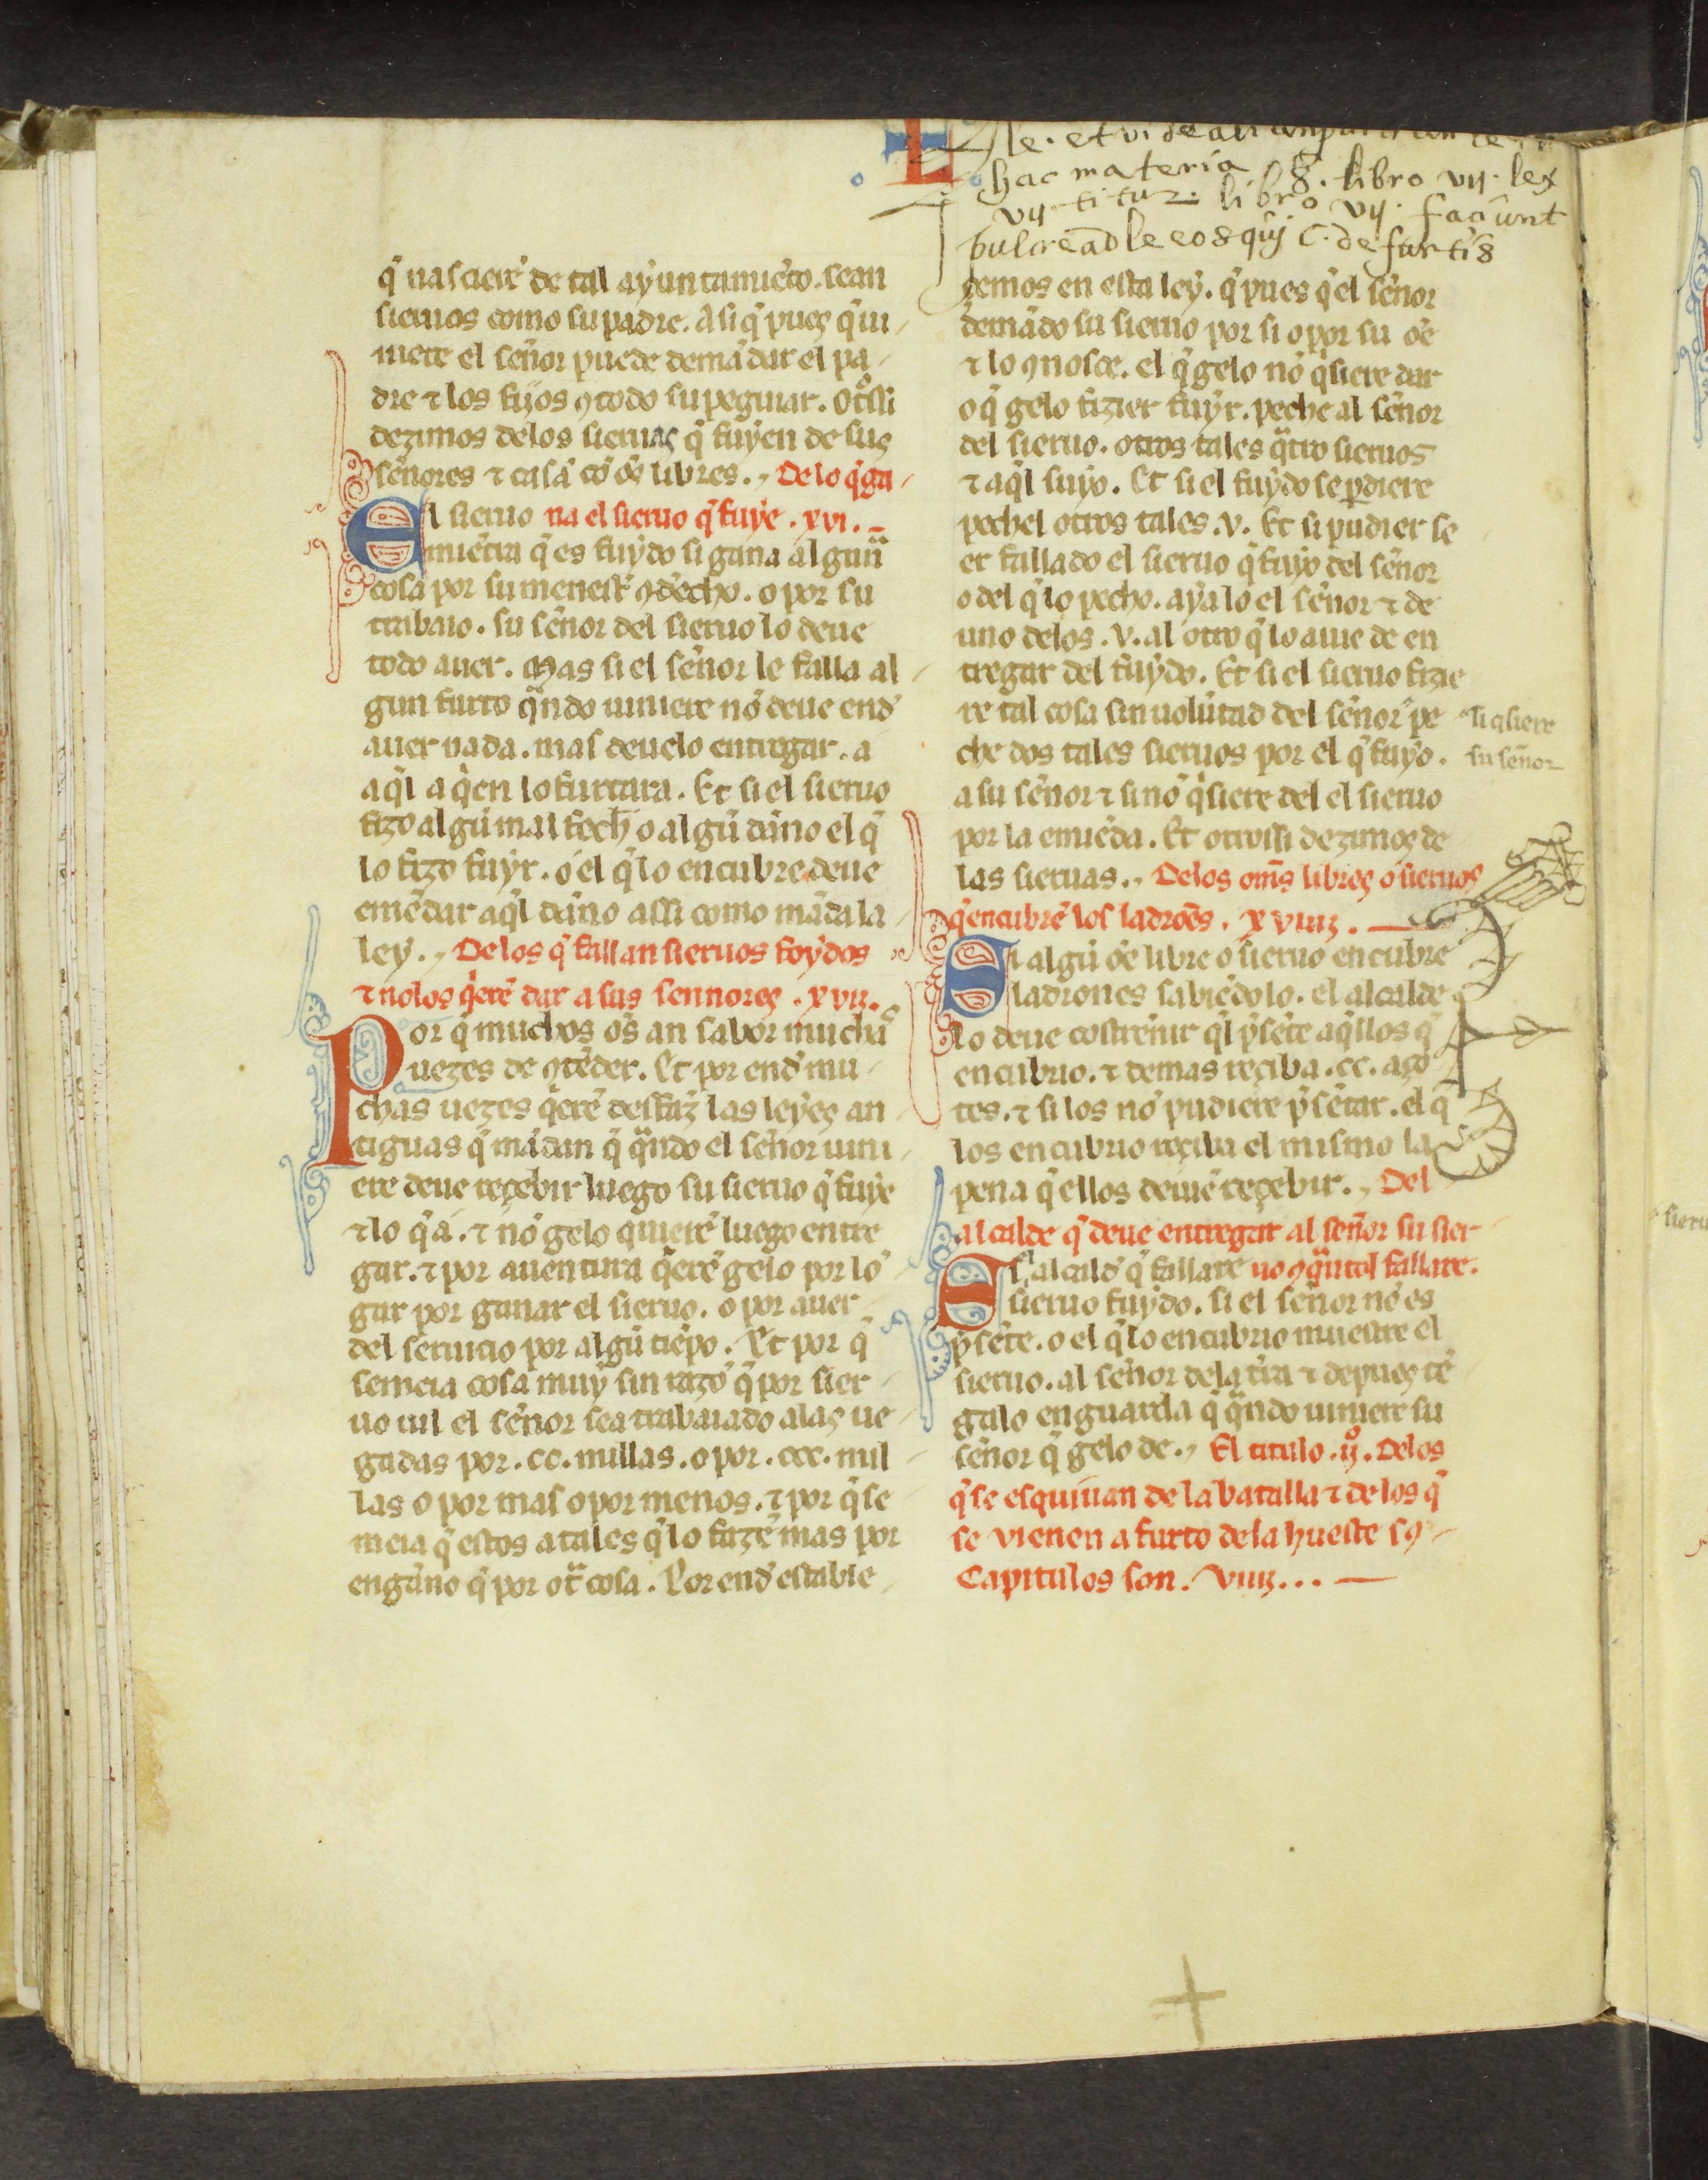 hac materia. 8. libro vij. lex
vij. titu. 2. libro vij. faciunt
pulcre ad le eos qui C. de furtis
q̃ nasciere᷉ de tal ayuntamie᷉to. sean
sieruos como su padre. Asi q̃ pues q̃ ui
niere el sen᷉or puede dema᷉dar el pa
dre ⁊ los fijos ꝯ todo su peguiar. Otossi
dezimos delos sieruas q̃ fuyen de sus
sen᷉ores ⁊ casa᷉ co᷉ oe᷉ libres. Delo q̃ ga
El sieruo na el sieruo q̃ fuye. xvi.
mie᷉tra q̃ es fuydo si gana algun̈
cosa por su menest᷉ ꝯ derecho. o por su
trabaio. su sen᷉or del sieruo lo deue
todo auer. Mas si el sen᷉or le falla al
gun furto qn̈do uiniere no᷉ deue end᷉
auer nada. mas deuelo entregar. a
aq̃l a q̃en lo furtara. Et si el sieruo
fizo algu᷉ mal fech̅ o algu᷉ da᷉no el q̃
lo fizo fuyr. o el q̃ lo encubre deue
eme᷉dar aq̃l dan᷉o assi como ma᷉da la
ley. Delos q̃ fallan sieruos foydos
⁊ nolos q̃ere᷉ dar a sus sennores. xvij.
Por q̃ muchos oe᷉s an sabor muchas
uezes de ꝯte᷉der. Et por end᷉ mu
chas uezes q̃ere᷉ desfaz᷉ las leyes an
tiguas q̃ ma᷉dan q̃ qn̈do el sen᷉or uini
ere deue reçebir luego su sieruo q̃ fuye
⁊ lo q̃ a. ⁊ no᷉ gelo quiere᷉ luego entre
gar. ⁊ por auentura q̃ere᷉ gelo por lo᷉
gar por ganar el sieruo. o por auer
del seruicio por algu᷉ tie᷉po. Et por q̃
semeia cosa muy sin razo᷉ q̃ por sier
uo uil el sen᷉or sea trabaiado alas ue
gadas por. cc. millas. o por. ccc. mil
las o por mas o por menos. ⁊ por q̃ se
meia q̃ estos atales q̃ lo faze᷉ mas por
engan᷉o q̃ por ot̃ cosa. Por end᷉ estable
çemos en esta ley. q̃ pues q̃ el sen᷉or
dema᷉do su sieruo por si o por su oe᷉
⁊ lo ꝯnosce. el q̃ gelo no᷉ q̃siere dar
o q̃ gelo fizier fuyr. peche al sen᷉or
del sieruo. otros tales q̈tro sieruos
⁊ aq̃l suyo. Et si el fuydo se ꝑdiere
pechel otros tales. v. Et si pudier se
er fallado el sieruo q̃ fuyo del sen᷉or
o del q̃ lo pecho. aya lo el sen᷉or ⁊ de
uno delos. v. al otro q̃ lo auie de en
tregar del fuydo. Et si el sieruo fizie
re tal cosa sin uolu᷉tad del sen᷉or pe
si q̃siere
che dos tales sieruos por el q̃ fuyo.
su señor
a su sen᷉or ⁊ si no᷉ q̃siere del el sieruo
por la emie᷉da. Et otrossi dezimos de
las sieruas. Delos om᷉s libres o sieruos
q̃ encubre᷉ los ladroe᷉s. xviij.
Si algu᷉ oe᷉ libre o sieruo encubre
ladrones sabie᷉dolo. el alcalde
lo deue costren᷉ir q̃l p̃se᷉te aq̃llos q̃
encubrio. ⁊ demas reçiba. cc. aço
tes. ⁊ si los no᷉ pudiere p̃se᷉tar. el q̃
los encubrio reçiba el mismo la
pena q̃ ellos deuie᷉ reçebir. Del
alcalde q̃ deue entregar al sen᷉or su sier
El alcald᷉ q̃ fallare uo ꝯ q̈ntol fallare.
sieruo fuydo. si el sen᷉or no᷉ es
p̃se᷉te. o el q̃ lo encubrio muestre el
sieruo. al sen᷉or dela t᷉ra ⁊ depues te᷉
galo en guarda q̃ qn̈do uiniere su
sen᷉or q̃ gelo de. El titulo. ijº. Delos
q̃ se esquiuan de la batalla ⁊ de los q̃
se vienen a furto de la hueste sꝯ
Capitulos son. viiij...